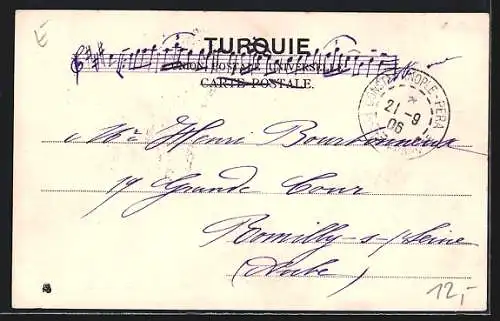 E
TURQUIE
UNION POSTALE UNIVERSELLE
CARTE POSTALE.
CONSTANTINOPLE-PERA
21-9
06
Mr Henri Bourbonneux
19 Grande Cour
Romilly-s-/Seine
(Aube)
12,-